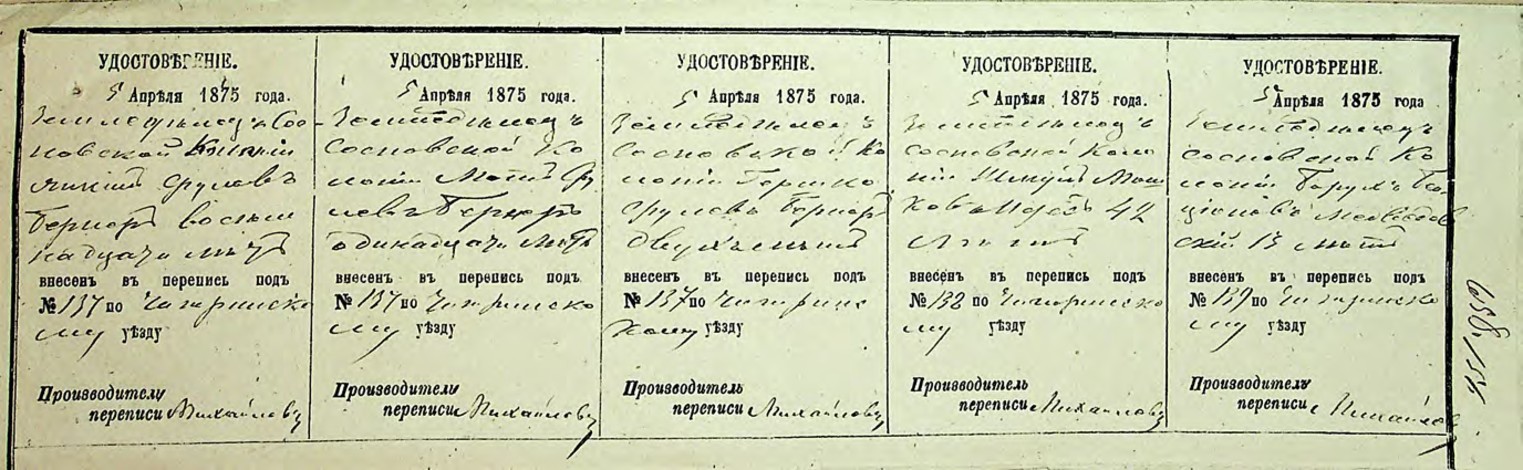 УДОСТОВѢРЕНІЕ.
5 Апрѣля 1875 года.
Земледѣлецъ Сос-
новской Колоніи
Срулевъ
Бернеръ восьми
надцати лѣтъ
внесенъ въ перепись подъ
№ 137 по Чигиринско
му уѣзду
Производитель
переписи Михайловъ
УДОСТОВѢРЕНІЕ.
5 Апрѣля 1875 года.
Земледѣлецъ
Сосновской Ко
лоніи Мотя Сру
левъ Бернеръ
одинадцати лѣтъ
внесенъ въ перепись подъ
№ 137 по Чигиринско
му уѣзду
Производитель
переписи Михайловъ
УДОСТОВѢРЕНІЕ.
5 Апрѣля 1875 года.
Земледѣлецъ
Сосновской Ко
лоніи Гершко
Срулевъ Бернеръ
двухъ лѣтъ
внесенъ въ перепись подъ
№ 137 по Чигиринс
кому уѣзду
Производитель
переписи Михайловъ
УДОСТОВѢРЕНІЕ.
5 Апрѣля 1875 года.
Земледѣлецъ
Сосновской Коло
ніи Шмуль Мош
ковъ 42
лѣтъ
внесенъ въ перепись подъ
№ 138 по Чигиринско
му уѣзду
Производитель
переписи Михайловъ
УДОСТОВѢРЕНІЕ.
5 Апрѣля 1875 года
Земледѣлецъ
Сосновской Ко
лоніи Борухъ Бе
ціоновъ Медведов
скій 13 лѣтъ
внесенъ въ перепись подъ
№ 139 по Чигиринско
му уѣзду
Производитель
переписи Михайлов